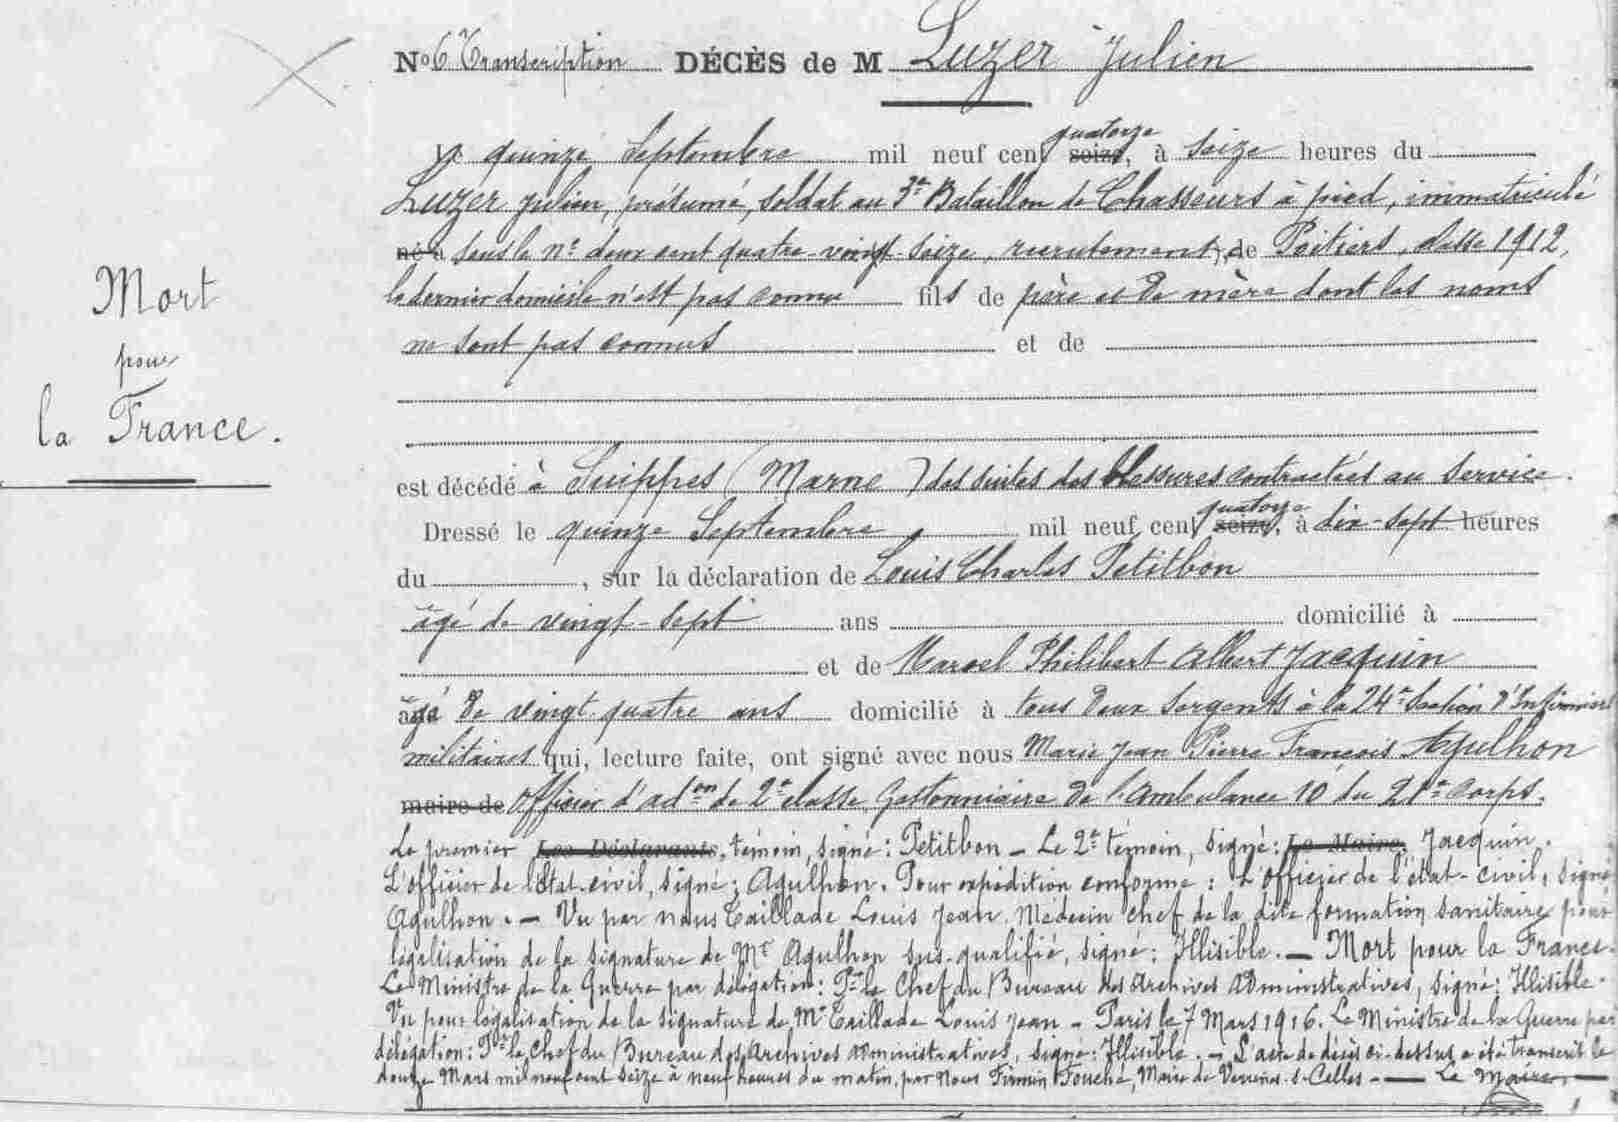 No 6 Transcription DÉCÈS de M Luzer Julien
Le quinze Septembre mil neuf cent seize, quatorze à seize heures du
Luzer Julien, présumé, soldat au 3e Bataillon de Chasseurs à pied, immatriculé
né à sous le no deux cent quatre-vingt-seize, recrutement, de Poitiers, classe 1912,
le dernier domicile n'est pas connu fils de père et de mère dont les noms
ne sont pas connus et de
Mort
pour
la France.
est décédé à Suippes (Marne) des suites des blessures contractées au service.
Dressé le quinze Septembre mil neuf cent seize, quatorze à dix-sept heures
du , sur la déclaration de Louis Charles Petitbon
âgé de vingt-sept ans domicilié à
et de Marcel Philibert Albert Jacquin
âgé de vingt-quatre ans domicilié à tous deux sergents à la 24e Section d'Infirmiers
militaires qui, lecture faite, ont signé avec nous Marie Jean Pierre François Agulhon
maire de Officier d'adon de 2e classe Gestionnaire de l'Ambulance 10 du 21e corps.
Le premier Les Déclarants, témoin, signé : Petitbon - Le 2e témoin, signé : Le Maire, Jacquin.
L'officier de l'état-civil, signé : Agulhon. Pour expédition conforme : L'officier de l'état-civil, signé
Agulhon. - Vu par nous Taillade Louis Jean Médecin chef de la dite formation sanitaire pour
légalisation de la signature de Mr Agulhon sus-qualifié, signé : Illisible. - Mort pour la France.
Le Ministre de la Guerre par délégation : Pr le Chef du Bureau des Archives Administratives, signé : Illisible.
Vu pour légalisation de la signature de Mr Taillade Louis Jean - Paris le 7 Mars 1916. Le Ministre de la Guerre par
délégation : Pr le Chef du Bureau des Archives administratives, signé : Illisible. - L'acte de décès ci-dessus a été transcrit le
douze Mars mil neuf cent seize à neuf heures du matin, par Nous Firmin Fouché, Maire de s. Celles - Le Maire,